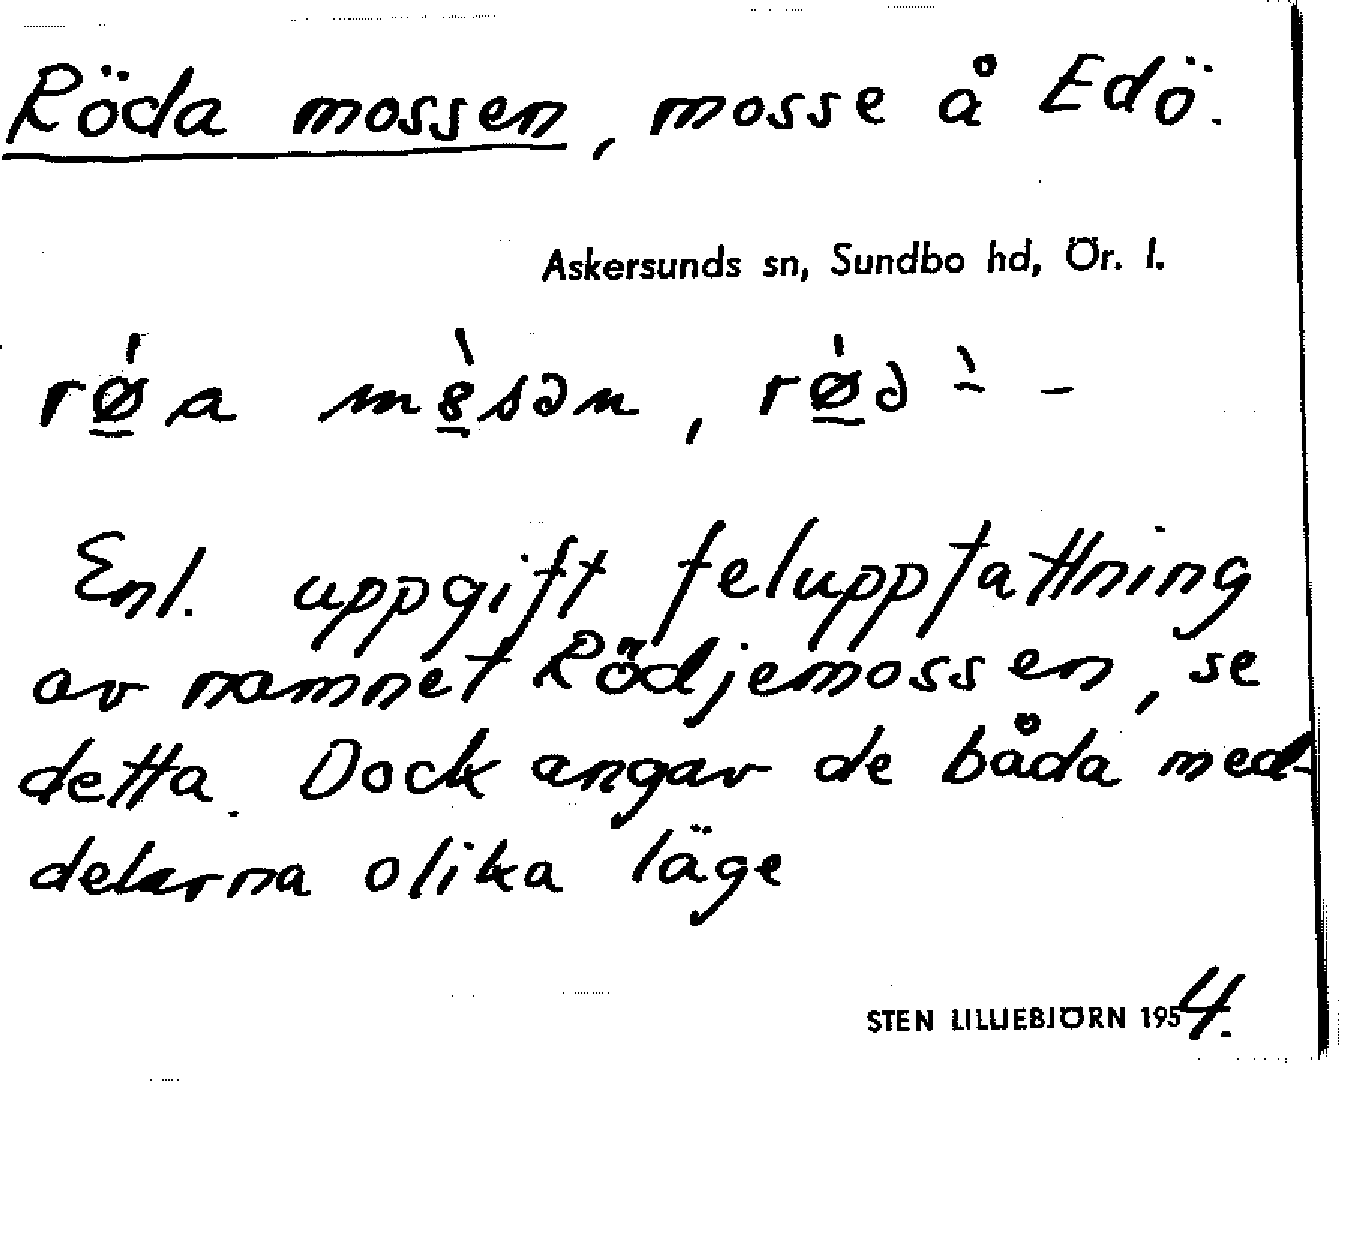 Röda mossen, mosse å Edö.
Askersunds sn, Sundbo hd, Ör. l.
rǿ̲a m8̲̀sən, rǿ̲ə ̀~ –
Enl. uppgift feluppfattning
av namnet Rödjemossen, se
detta. Dock angav de båda med-
delarna olika läge
STEN LILLIEBJÖRN 1954.